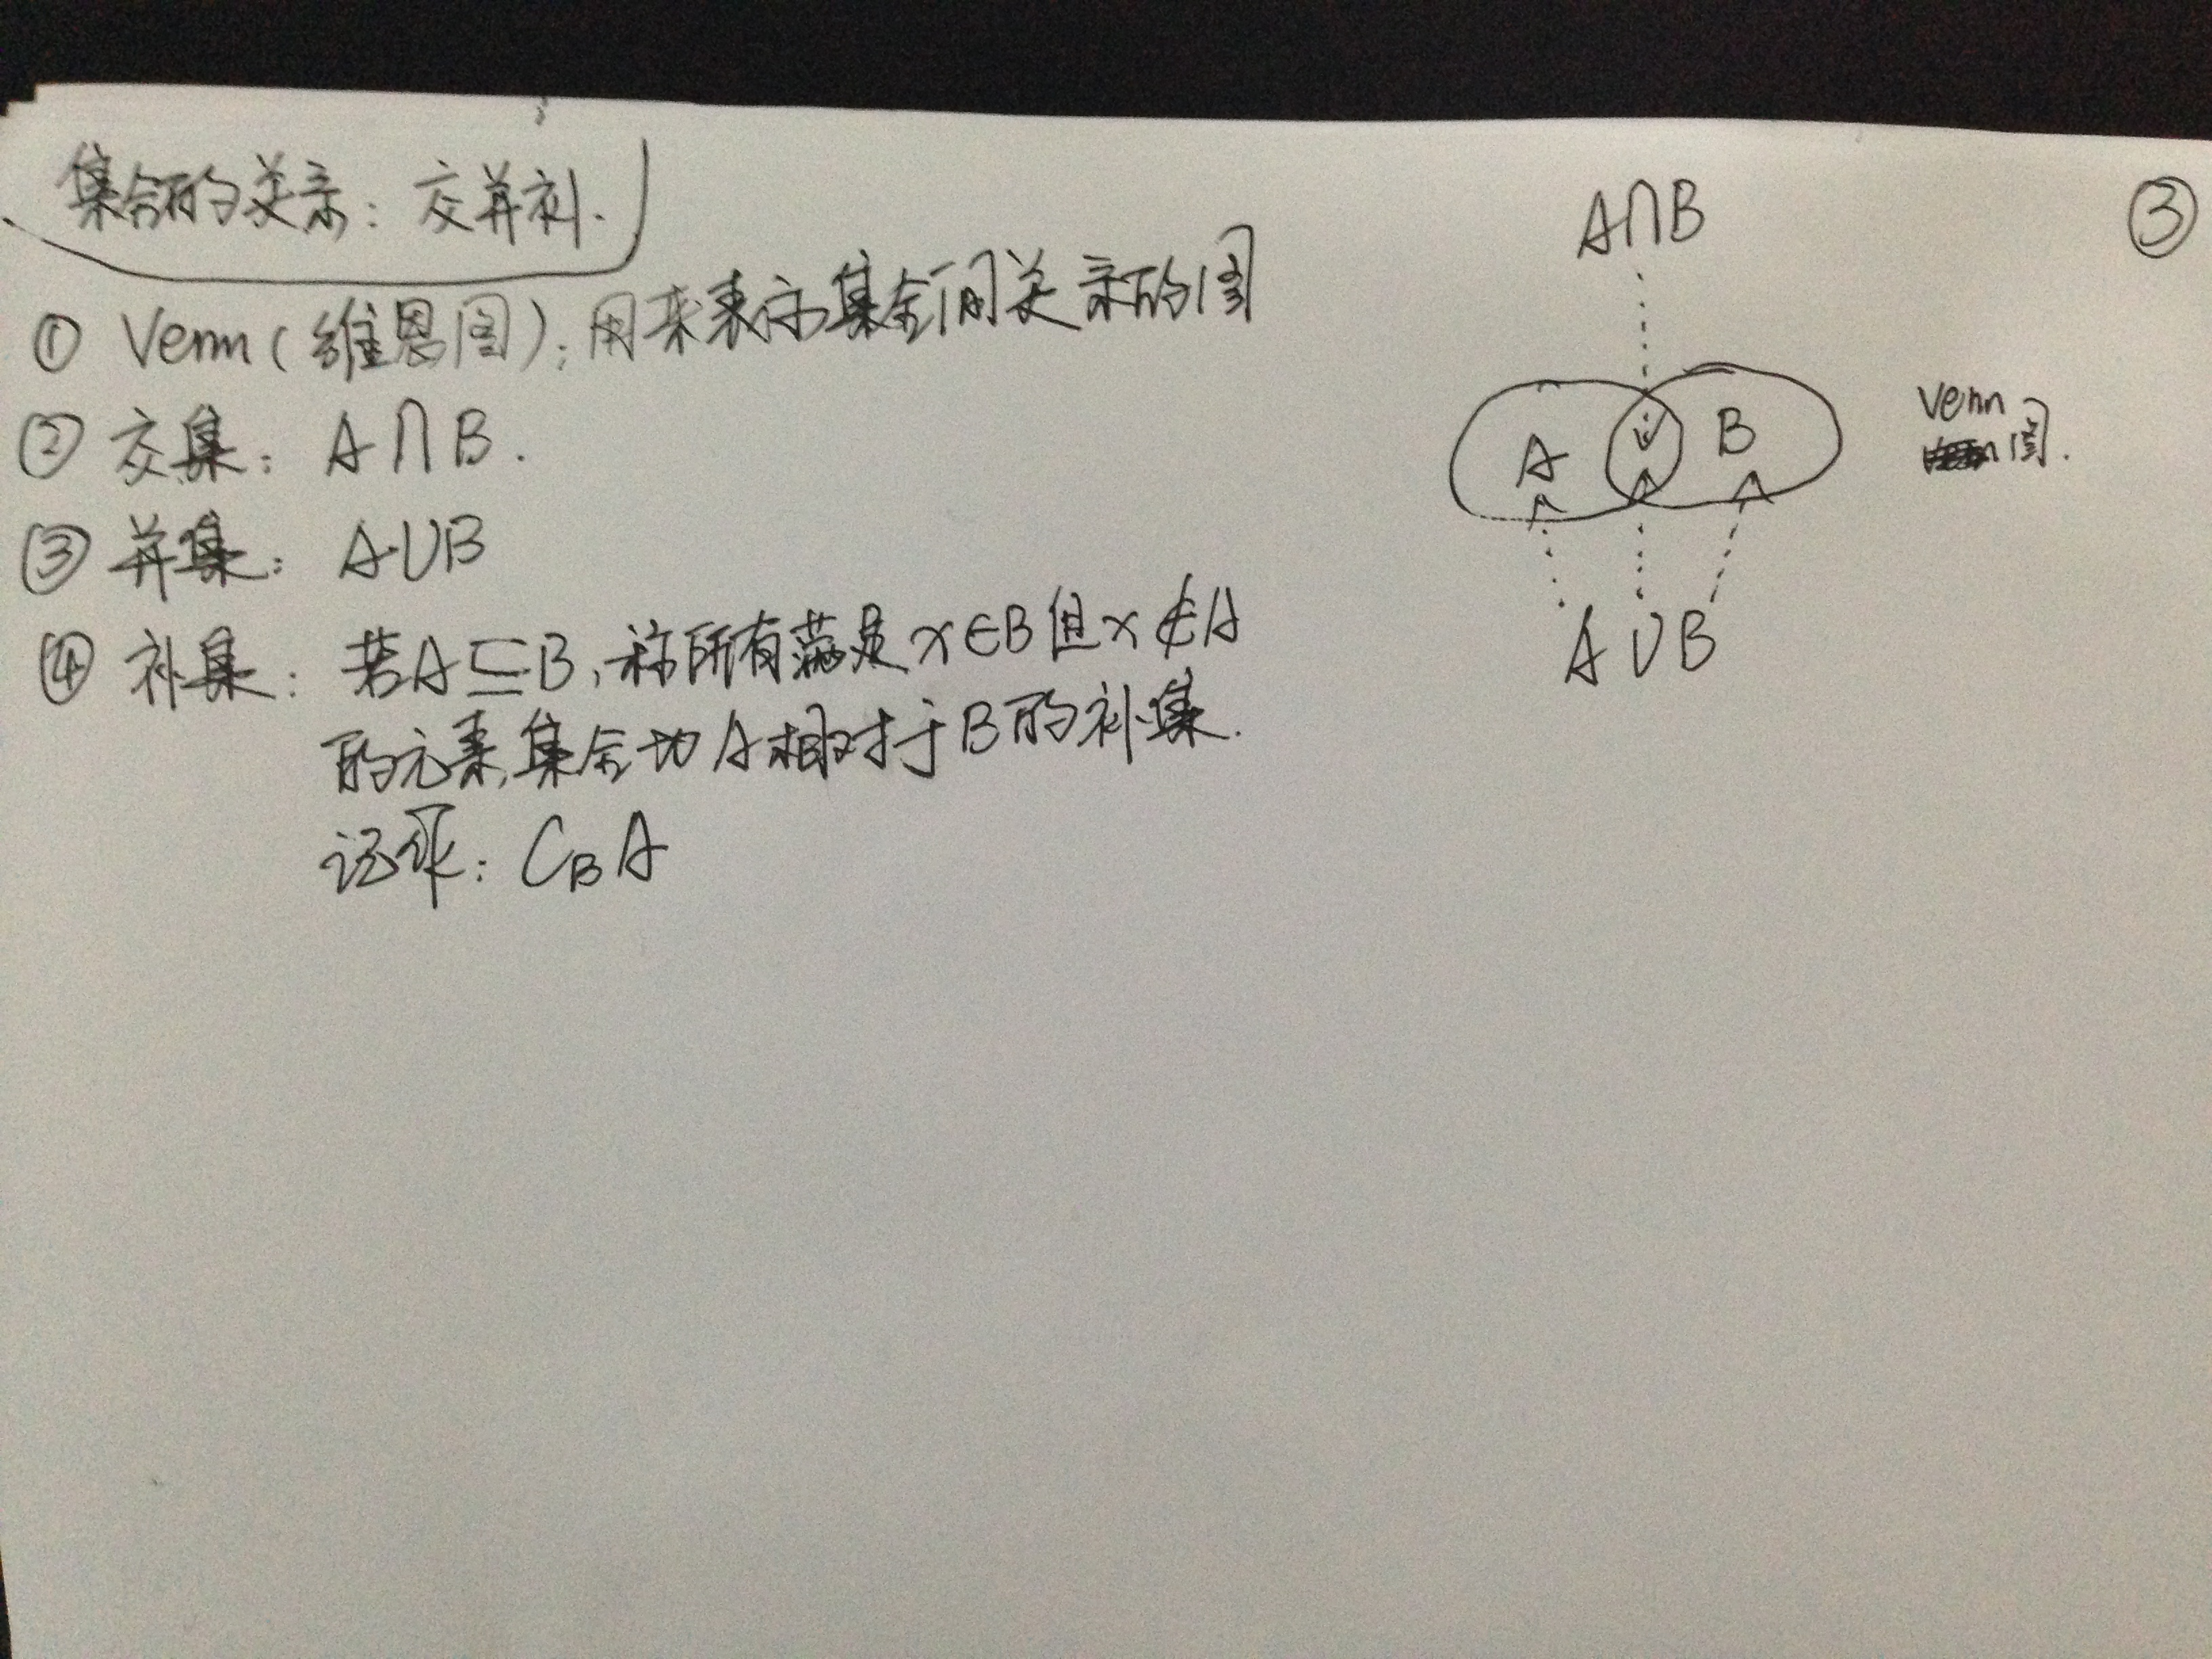 集合的关系：交并补.
① Venn（维恩图）：用来表示集合间关系的图
② 交集：A∩B.
③ 并集：A∪B
④ 补集：若A⊆B,称所有满足x∈B但x∉A
的元素集合为A相对于B的补集.
记录：C_B A
③
A∩B
A B
Venn
图.
A∪B